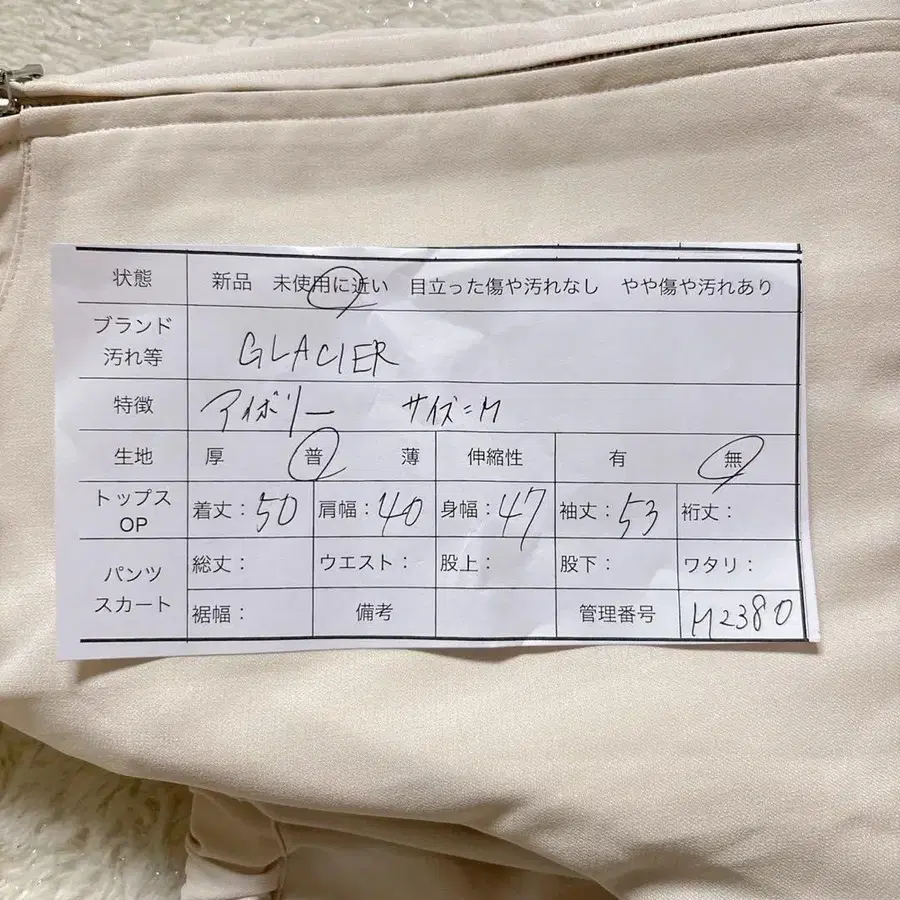 状態 新品 未使用に近い 目立った傷や汚れなし やや傷や汚れあり
ブランド
汚れ等 GLACIER
特徴 アイボリー サイズ=M
生地 厚 普 薄 伸縮性 有 無
トップス
OP 着丈:50 肩幅:40 身幅:47 袖丈:53 裄丈:
パンツ
スカート 総丈: ウエスト: 股上: 股下: ワタリ:
裾幅: 備考 管理番号 M2380